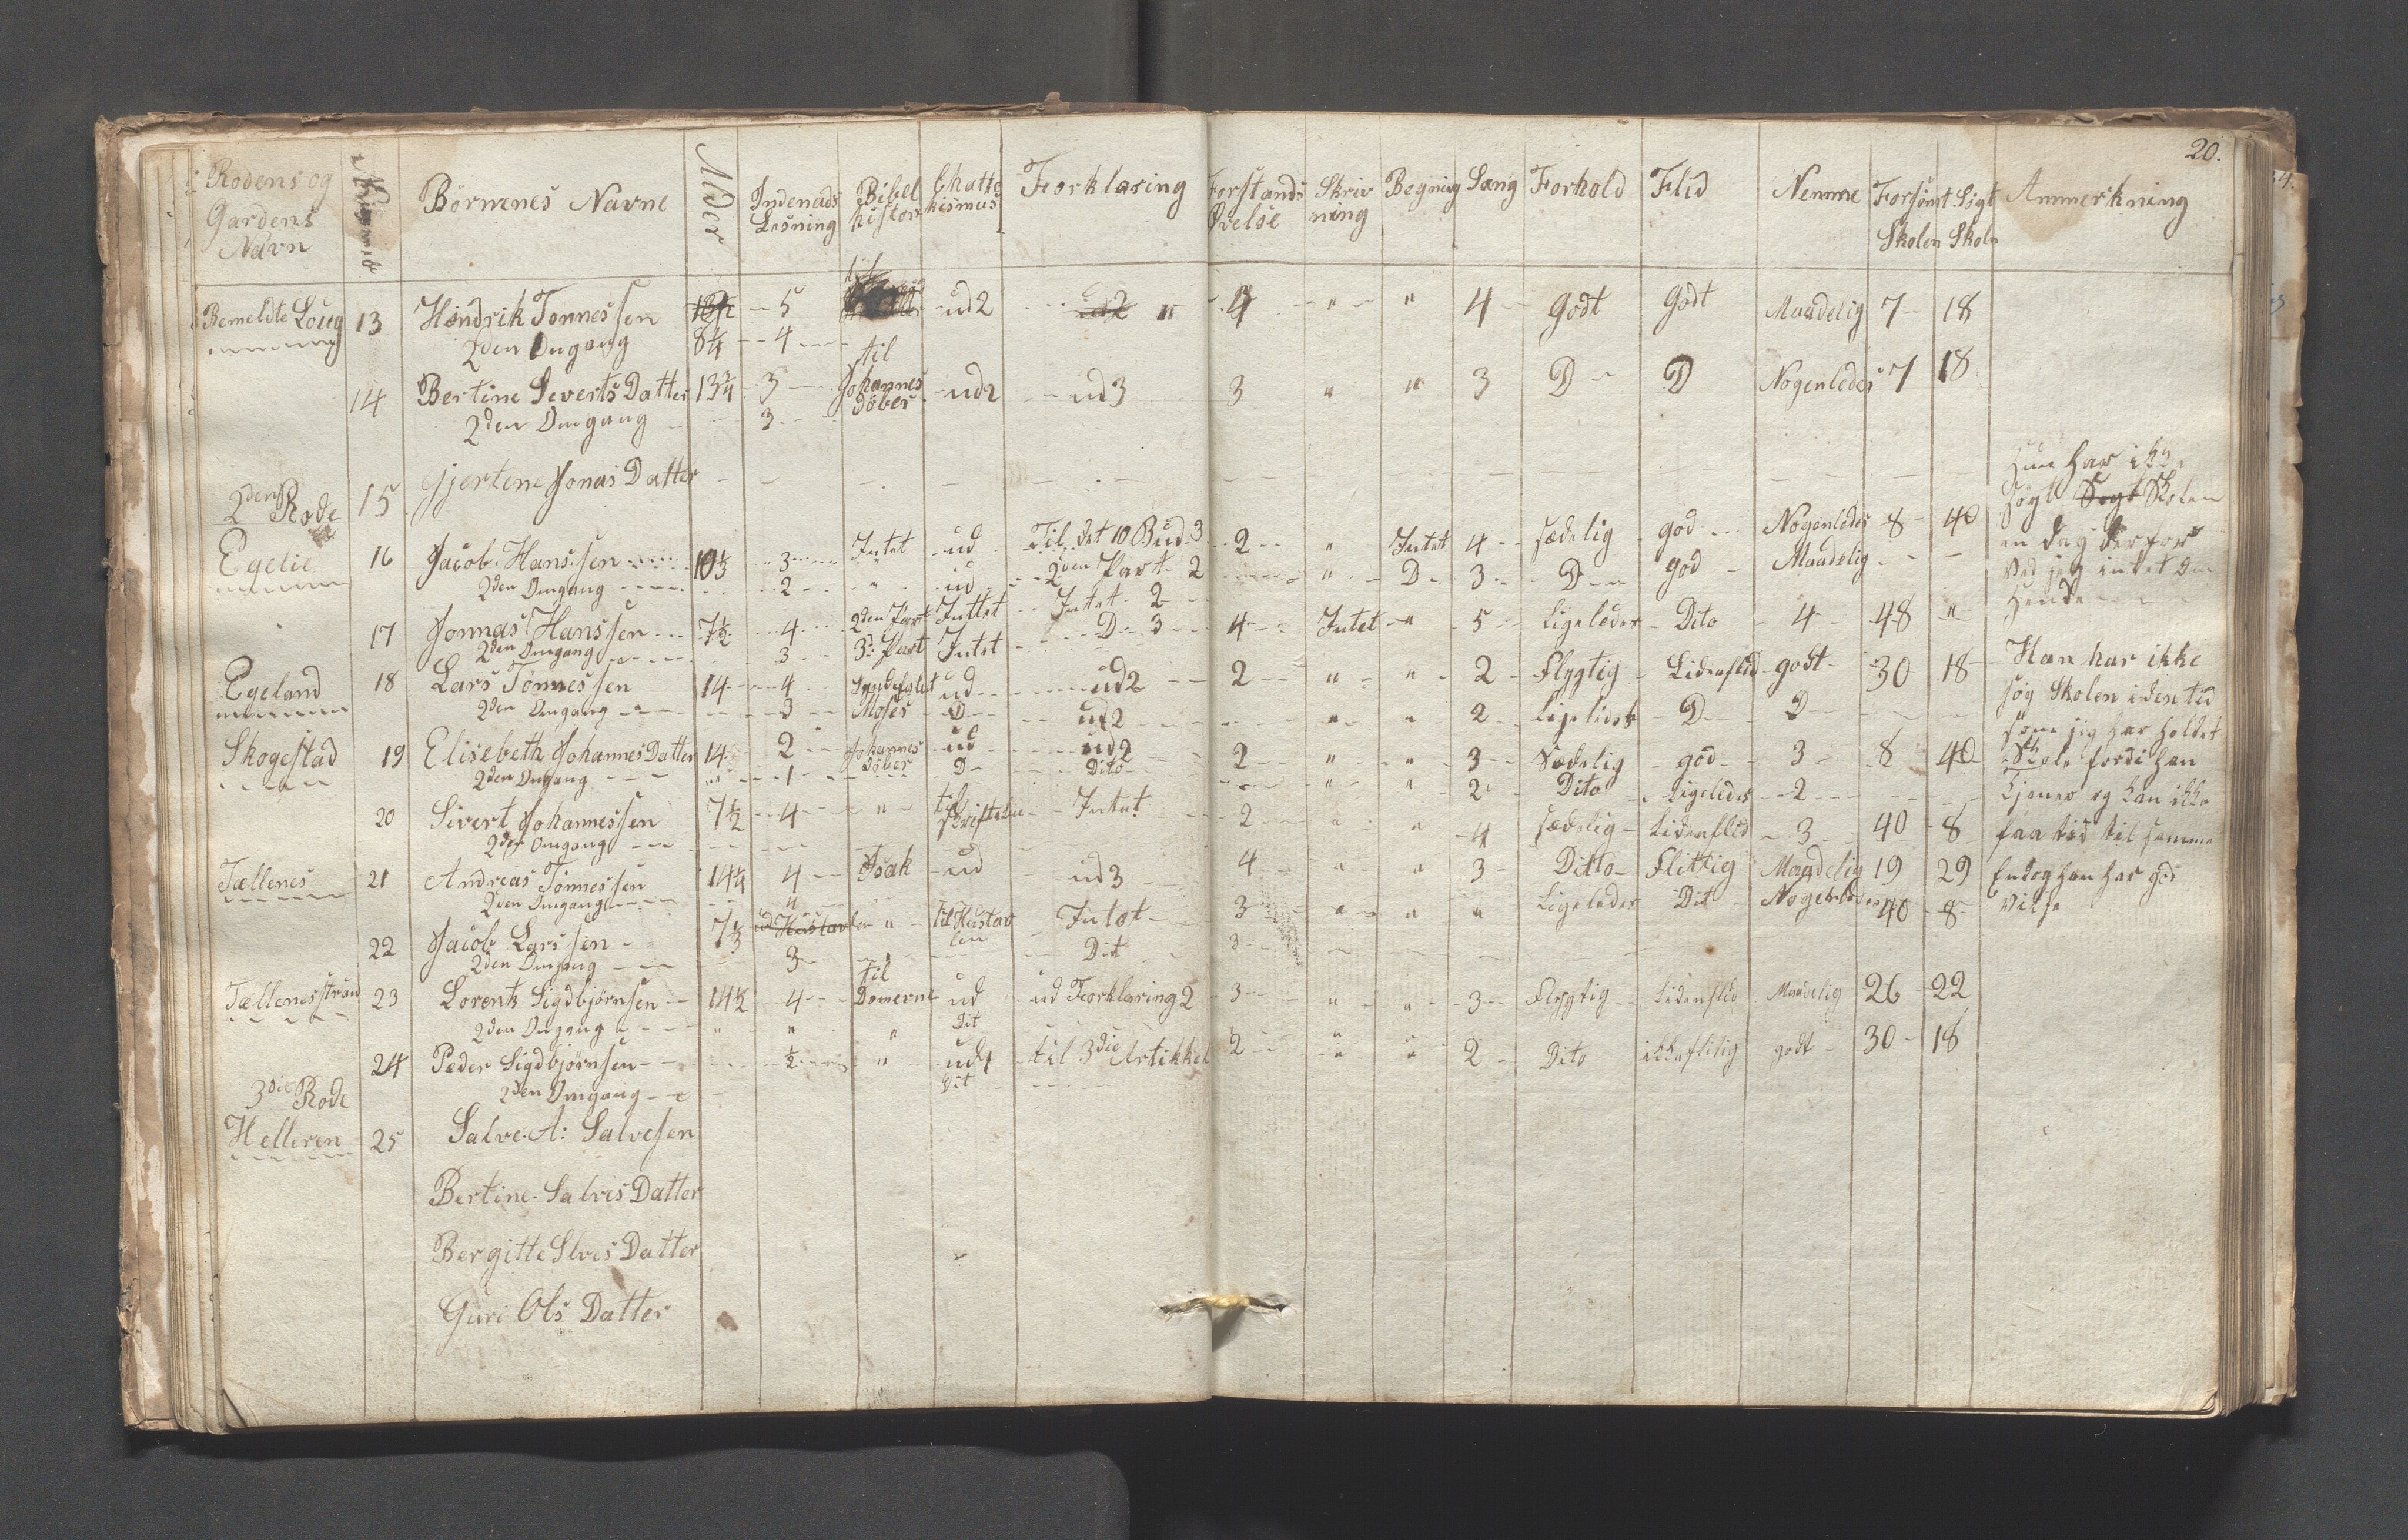 20.
Rodens og Gardens Navn Börnenes Navne Alder Indenads Lesning Bibel histori Chatte kismus Forklaring Forstands Övelse Skriv ning Regning Sang Forhold Flid Nemme Forsömt Skolen Sigt Skoln Anmerkning
Bemeldte Loug 13 Hendrik Tonnessen 5 ud 2 " 4 " " 4 godt godt Maadelig 7 18
2den Omgang 8 1/4 4
14 Bertine Severts Datter 13 3/4 3 til Johannes Döber ud 2 ud 3 3 " " 3 D D Nogenledes 7 18
2den Omgang 3
2den Rode 15 Gjertine Jonas Datter
Hun har ikke
sögt Sogt Skolen
en dag derfor
ved jeg intet om
Hende
Egelie 16 Jacob Hanssen 10 1/3 3 Intet ud Til det 10 Bud 3 2 " Intet 4 sædelig god Nogenledes 8 40
2den Omgang 2 " ud 2den Part 2 " D 3 D god Maadelig
17 Jonnas Hanssen 7 1/2 4 2den Part Inttet Intet 2 4 Intet " 5 Ligeledes Dito 4 48 "
2den Omgang 3 3: Part Intet D 3
Egeland 18 Lars Tönnessen 14 4 Syndefalet ud ud 2 2 " " 2 Flygtig Lidenflid godt 30 18
2den Omgang 3 Moses D ud 2 " " 2 Ligeledes D D
Han har ikke
sög Skolen i den tid
som jig har holdet
Skole fordi han
tjener og kan ikke
faa tid til samme
Endog han har god
vilje
Skogestad 19 Elisebeth Johannes Datter 14 2 Johannes Döber ud ud 2 2 " " 3 Sædelig god 3 8 40
2den Omgang " 1 D Dito " " 2 Dito Ligeledes 2
20 Sivert Johannessen 7 1/2 4 " til Intet 2 " " 4 sædelig Lidenflid 3 40 8
2den Omgang
Tællenes 21 Andreas Tönnessen 14 1/4 4 Isak ud ud 3 4 " " 3 Ditto Flittig Maadelig 19 29
2den Omgang 4
22 Jacob Larssen 7 1/3 ud Hustavlen " til Hustavlen Intet 3 " " " Ligeledes Dit Nogenledes 40 8
2den Omgang 3 Dit 3
Tællenesstrand 23 Lorents Sigdbjörnsen 14 1/2 4 til Domerne ud ud Forklaring 2 3 " " 3 Flygtig Lidenflid Maadelig 26 22
2den Omgang " " " Dit
24 Peder Sigdbjörnsen 1/2 " ud 1 til 3die Artikkel 2 " " 2 Dito ikkeflitig godt 30 18
2den Omgang Dit
3die Rode
Helleren 25 Salve A: Salvesen
Bertine Salves Datter
Bergitte Slves Datter
Guri Ols Datter